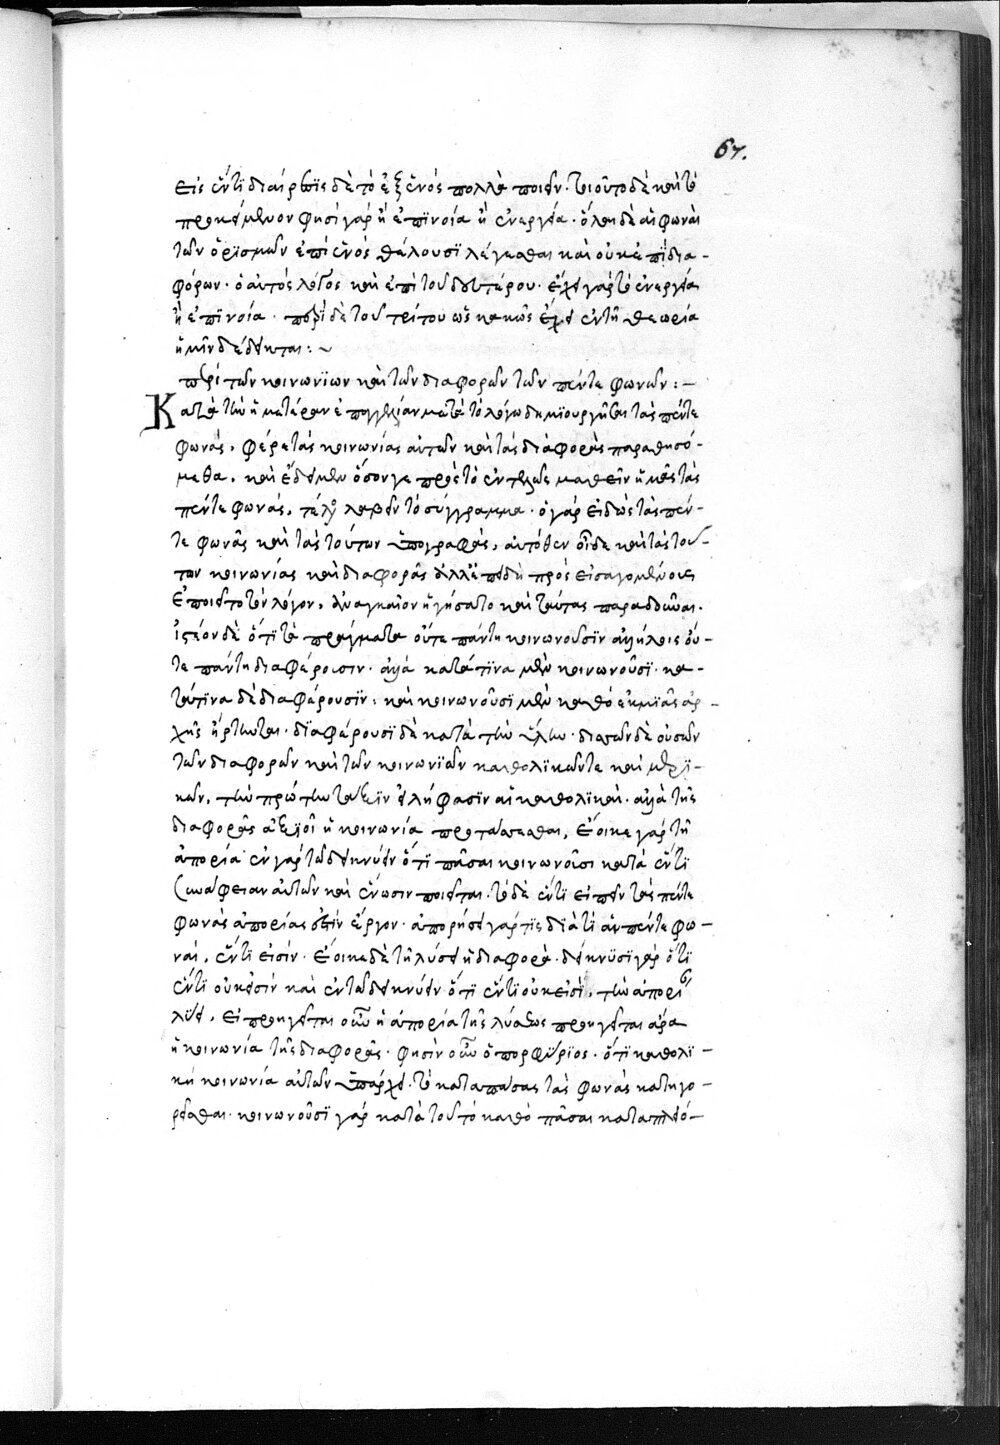 67.
εἰς ἕν τι διαίρεσις δὲ τὸ ἐξ ἑνὸς πολλὰ ποιεῖν· τοιοῦτο δὲ καὶ τὸ
προκείμενον φησὶ γὰρ ἢ ἐπινοία ἢ ἐνεργεία· ὅλαι δὲ αἱ φωναὶ
τῶν ὁρισμῶν ἐπὶ ἑνὸς θέλουσι λέγεσθαι καὶ οὐκ ἐπὶ δια-
φόρων· ὁ αὐτὸς λόγος καὶ ἐπὶ τοῦ δευτέρου· ἔχει γὰρ τὸ ἐνεργεία
ἢ ἐπινοία· περὶ δὲ τοῦ τρίτου ὡς κακῶς ἔχει ἐν τῇ θεωρία
ἡμῖν δέδεικται:~
περὶ τῶν κοινωνιῶν καὶ τῶν διαφορῶν τῶν πέντε φωνῶν:—
Κατὰ τὴν ἡμετέραν ἐπαγγελίαν μετὰ τὸ λόγω δημιουργῆσαι τὰς πέντε
φωνὰς, φέρε τὰς κοινωνίας αὐτῶν καὶ τὰς διαφορὰς παραθησό-
μεθα, καὶ ἔδει μὲν ὅσον γε πρὸς τὸ ἐντελῶς μαθεῖν ἡμᾶς τὰς
πέντε φωνάς, τέλος λαβεῖν τὸ σύγγραμμα· ὁ γὰρ εἰδὼς τὰς πέν-
τε φωνὰς καὶ τὰς τούτων ὑπογραφὰς, αὐτόθεν οἶδε καὶ τὰς τού-
των κοινωνίας καὶ διαφορὰς ἀλλ' ἐπειδὴ πρὸς εἰσαγομένους
ἐποιεῖτο τὸν λόγον, ἀναγκαῖον ἡγήσατο καὶ ταύτας παραδοῦναι.
ἰστέον δὲ ὅτι τὰ πράγματα οὔτε πάντη κοινωνοῦσιν ἀλλήλοις οὔ-
τε πάντη διαφέρουσιν· ἀλλὰ κατά τινα μὲν κοινωνοῦσι· κα-
τά τινα δὲ διαφέρουσιν: καὶ κοινωνοῦσι μὲν καθὸ ἐκ μιᾶς ἀρ-
χῆς ἤρτηνται· διαφέρουσι δὲ κατὰ τὴν ὕλην· διττῶν δὲ οὐσῶν
τῶν διαφορῶν καὶ τῶν κοινωνιῶν καθολικῶν τε καὶ μερι-
κῶν, τὴν πρώτην τάξιν εἰλήφασιν αἱ καθολικαὶ· ἀλλὰ τῆς
διαφορᾶς ἀξιοῖ ἡ κοινωνία προτάττεσθαι, ἔοικε γὰρ τῇ
ἀπορία ἐν γὰρ τῶ δεικνύειν ὅτι πᾶσαι κοινωνοῦσι κατὰ ἕν τι
συνάφειαν αὐτῶν καὶ ἕνωσιν ποιεῖται· τὸ δὲ ἕν τι εἰπεῖν τὰς πέντε
φωνὰς ἀπορίας ἐστὶν ἔργον· ἀπορήσει γάρ τις διὰ τί αἱ πέντε φω-
ναὶ, ἕν τι εἰσίν· ἔοικε δὲ τῇ λύσει ἡ διαφορὰ· δείκνυσι γὰρ ὅτι
ἕν τι οὐκ εἰσὶν καὶ ἐν τῶ δεικνύειν ὅτι ἕν τι οὐκ εἰσὶ, τὴν ἀπορίαν
λύει, εἰ προηγεῖται οὖν ἡ ἀπορία τῆς λύσεως προηγεῖται ἄρα
ἡ κοινωνία τῆς διαφορᾶς· φησὶν οὖν ὁ πορφύριος· ὅτι καθολι-
κὴ κοινωνία αὐτῶν ὑπάρχει· τὸ κατὰ πάσας τὰς φωνὰς κατηγο-
ρεῖσθαι· κοινωνοῦσι γὰρ κατὰ τοῦτο καθὸ πᾶσαι κατὰ πλειό-